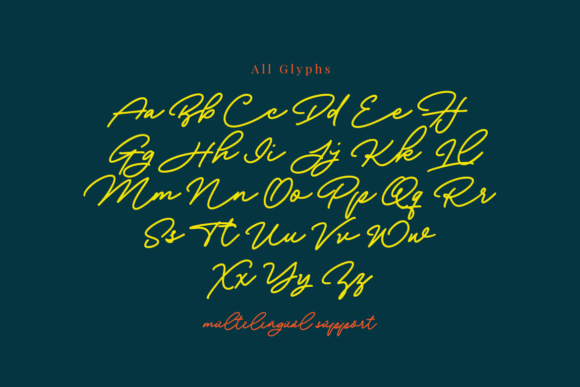 All Glyphs
Aa Bb Cc Dd Ee Ff
Gg Hh Ii Jj Kk Ll
Mm Nn Oo Pp Qq Rr
Ss Tt Uu Vv Ww
Xx Yy Zz
multilingual support